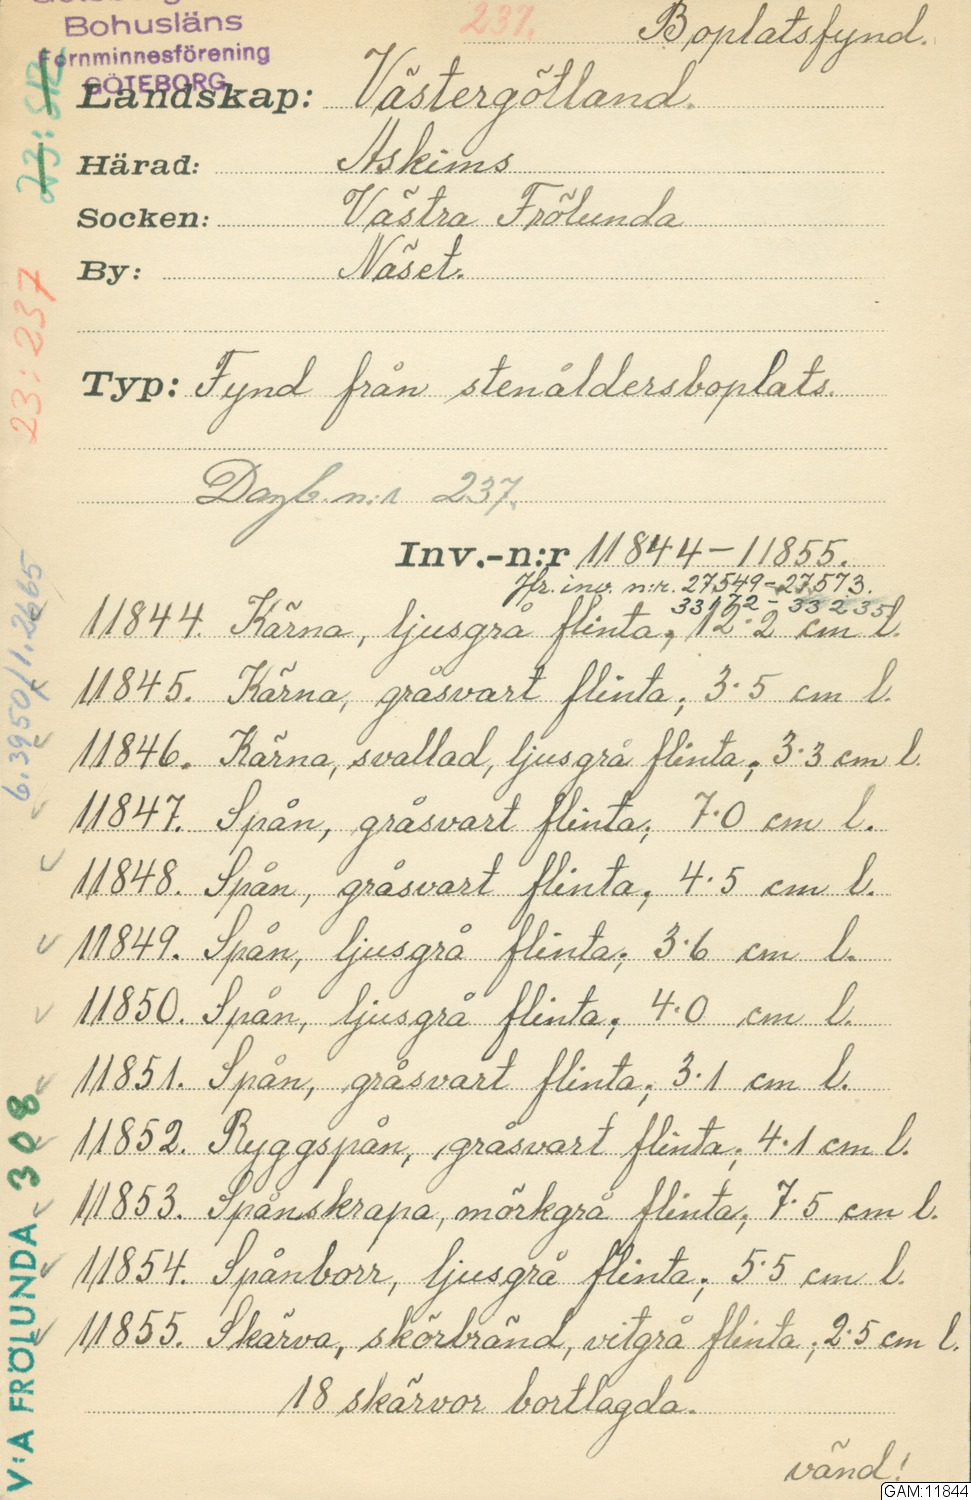 Bohusläns
Fornminnesförening
GÖTEBORG
237.
Boplatsfynd.
Landskap: Västergötland.
Härad: Askims
Socken: Västra Frölunda
By: Näset.
Typ: Fynd från stenåldersboplats.
Dagb. n:r 237.
Inv.-n:r 11844-11855.
Jfr. inv. n:r. 27549-27573.
33172-33235
11844. Kärna, ljusgrå flinta; 12·2 cm l.
11845. Kärna, gråsvart flinta; 3·5 cm l.
11846. Kärna, svallad, ljusgrå flinta; 3·3 cm l.
11847. Spån, gråsvart flinta; 7·0 cm l.
11848. Spån, gråsvart flinta; 4·5 cm l.
11849. Spån, ljusgrå flinta; 3·6 cm l.
11850. Spån, ljusgrå flinta; 4·0 cm l.
11851. Spån, gråsvart flinta; 3·1 cm l.
11852. Ryggspån, gråsvart flinta; 4·1 cm l.
11853. Spånskrapa, mörkgrå flinta; 7·5 cm l.
11854. Spånborr, ljusgrå flinta; 5·5 cm l.
11855. Skärva, skörbränd, vitgrå flinta; 2·5 cm l.
18 skärvor bortlagda.
vänd!
23:237
6.3950/1.2665
V:A FRÖLUNDA 308
GAM:11844